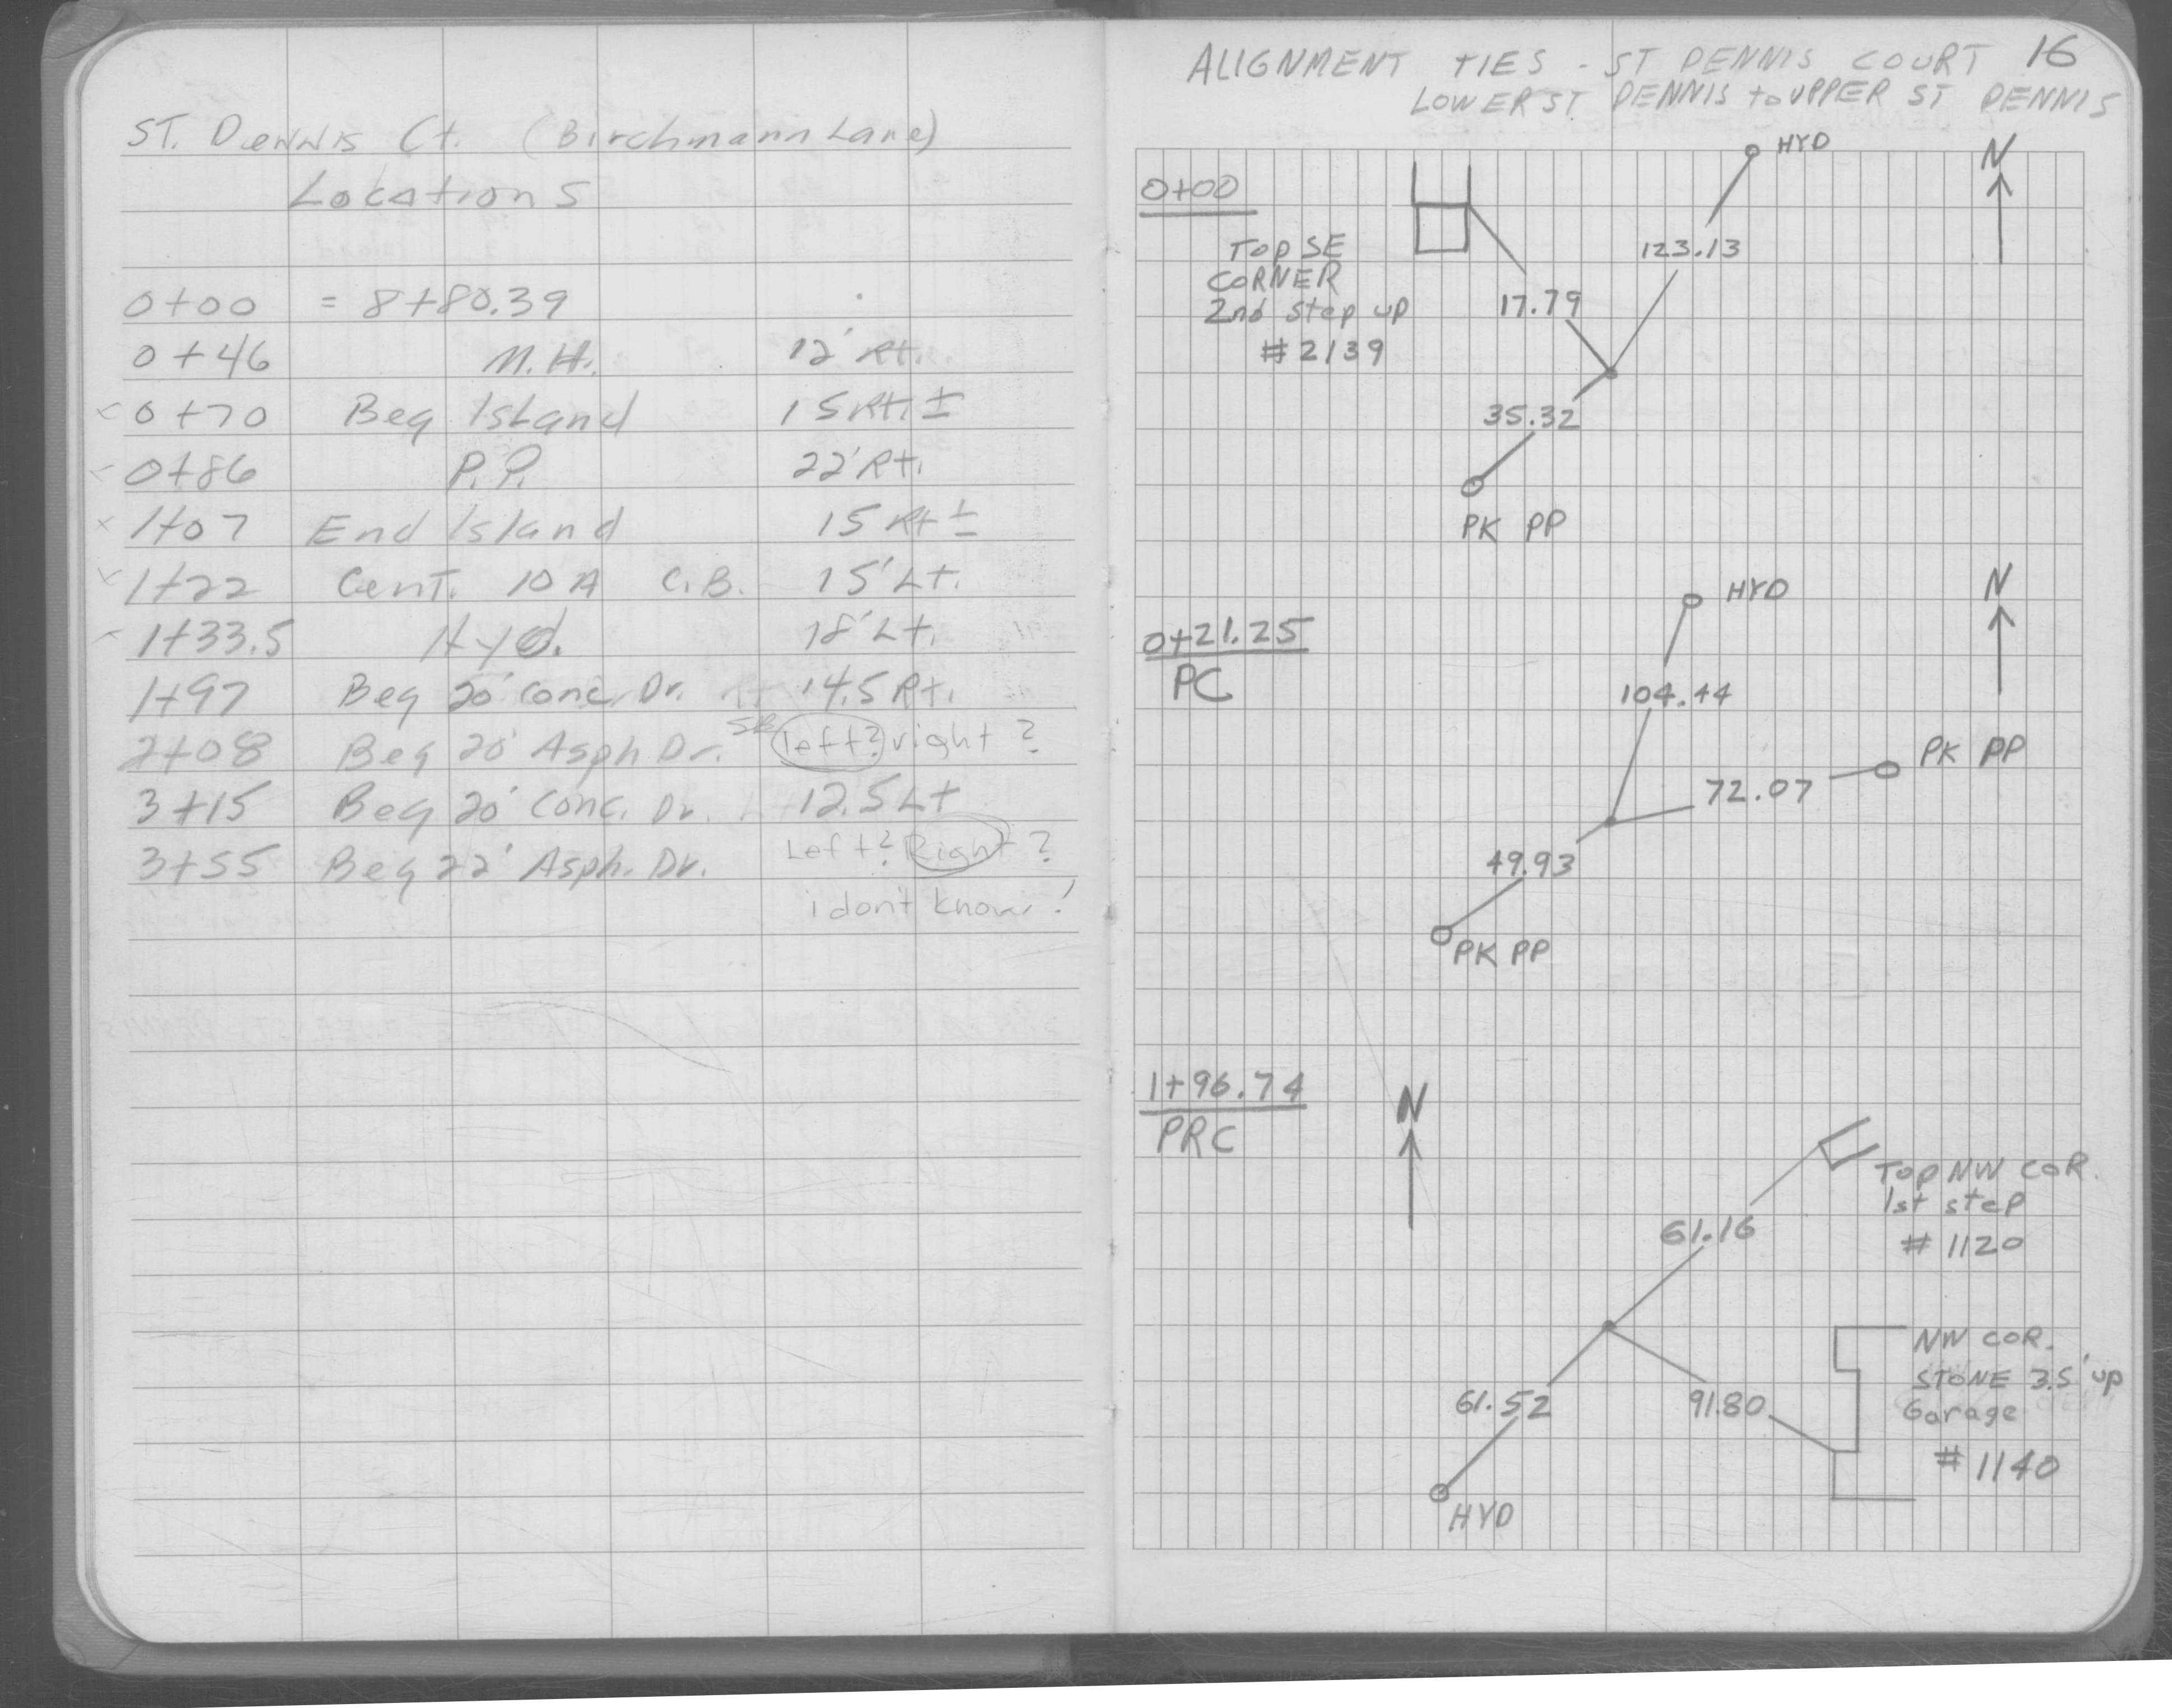 ST. Dennis Ct. (Birchmann Lane)
Locations
0+00 = 8+80.39
0+46 M.H. 12' Rt.
0+70 Beg Island 15 Rt. ±
0+86 P.P. 22' Rt.
1+07 End Island 15 Rt ±
1+22 Cent. 10 A C.B. 15' Lt.
1+33.5 Hyd. 18' Lt.
1+97 Beg 20' Conc. Dr. 14.5 Rt.
2+08 Beg 20' Asph Dr. left? right ?
3+15 Beg 20' Conc. Dr. 12.5 Lt
3+55 Beg 22' Asph. Dr. Left? Right ?
i dont know!
ALIGNMENT TIES - ST DENNIS COURT 16
LOWER ST. DENNIS to UPPER ST DENNIS
0+00
HYD
N
Top SE
CORNER
2nd step up
# 2139
17.79
123.13
35.32
PK PP
0+21.25
PC
HYD
N
104.44
72.07
PK PP
49.93
PK PP
1+96.74
PRC
N
Top NW COR.
1st step
# 1120
61.16
NW COR.
STONE 3.5' up
Garage
# 1140
61.52
91.80
HYD